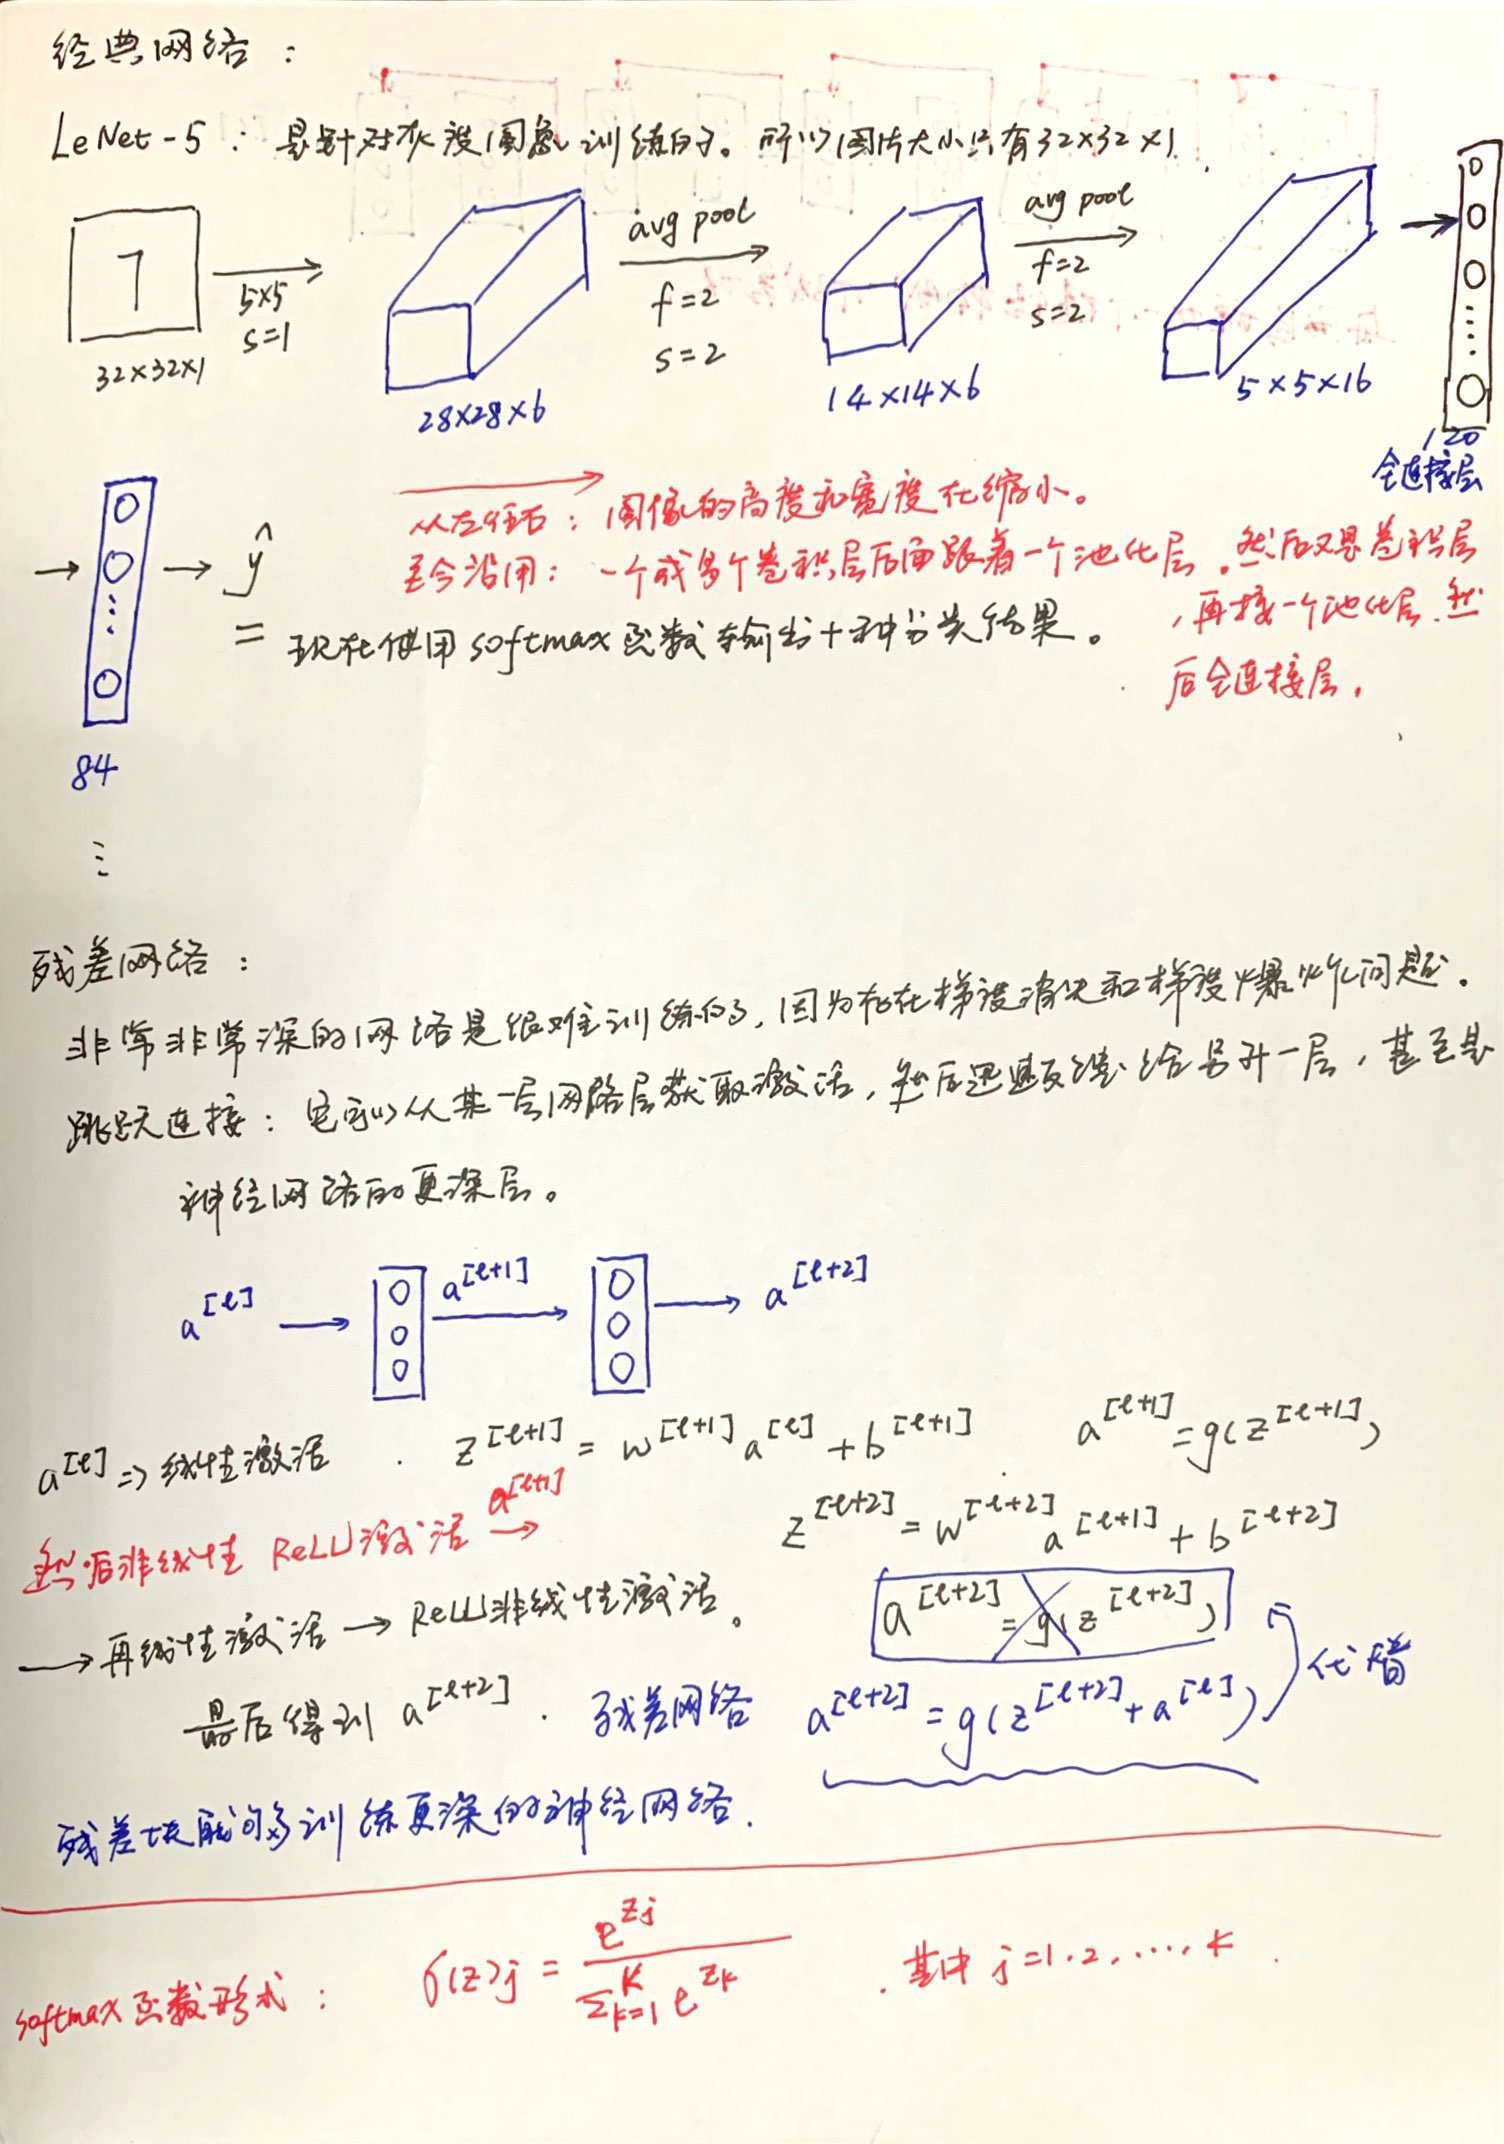 经典网络：
LeNet-5：是针对灰度图象训练的。所以图片大小只有32×32×1.
7
32×32×1
5×5
s=1
28×28×6
avg pool
f=2
s=2
14×14×6
avg pool
f=2
s=2
5×5×16
120
全连接层
84
ŷ
从左往右：图像的高度和宽度在缩小。
至今沿用：一个或多个卷积层后面跟着一个池化层。然后又是卷积层
，再接一个池化层.然
后全连接层.
= 现在使用softmax函数输出十种分类结果。
⋮
残差网络：
非常非常深的网络是很难训练的，因为存在梯度消失和梯度爆炸问题.
跳跃连接：它可以从某一层网路层获取激活，然后迅速反馈给另外一层，甚至是
神经网络的更深层。
a^[l] → a^[l+1] → a^[l+2]
a^[l] => 线性激活 . z^[l+1] = w^[l+1] a^[l] + b^[l+1] a^[l+1] = g(z^[l+1])
然后非线性 ReLU激活 a^[l+1] →
z^[l+2] = w^[l+2] a^[l+1] + b^[l+2]
→ 再线性激活 → ReLU非线性激活。
a^[l+2] = g(z^[l+2])
代替
最后得到 a^[l+2] . 残差网络 a^[l+2] = g(z^[l+2] + a^[l])
残差块能够训练更深的神经网络.
softmax函数形式： σ(z)j = e^zj / Σ_k=1^K e^zk . 其中 j=1.2,...,k.